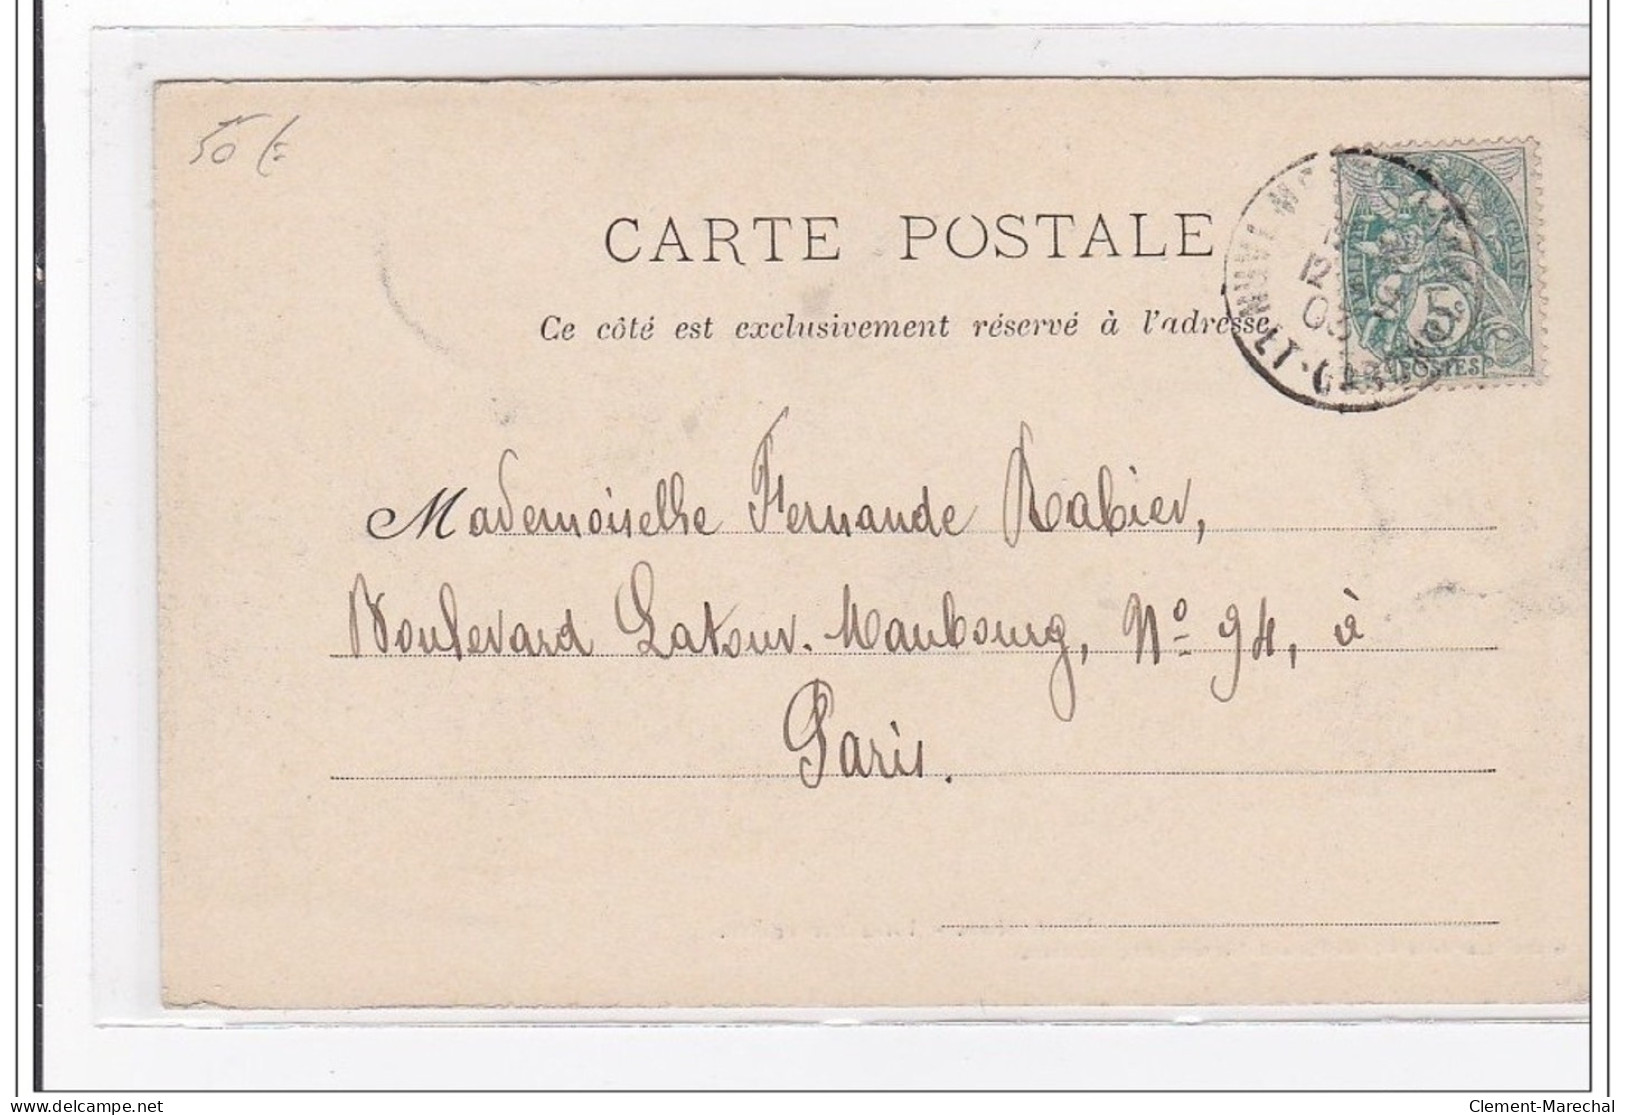 50 €
CARTE POSTALE
Ce côté est exclusivement réservé à l'adresse
5c
POSTES
LT-GARONNE
Mademoiselle Fernande Rabier,
Boulevard Latour-Maubourg, Nº 94, à
Paris.
delcampe.net
Clement-Marechal